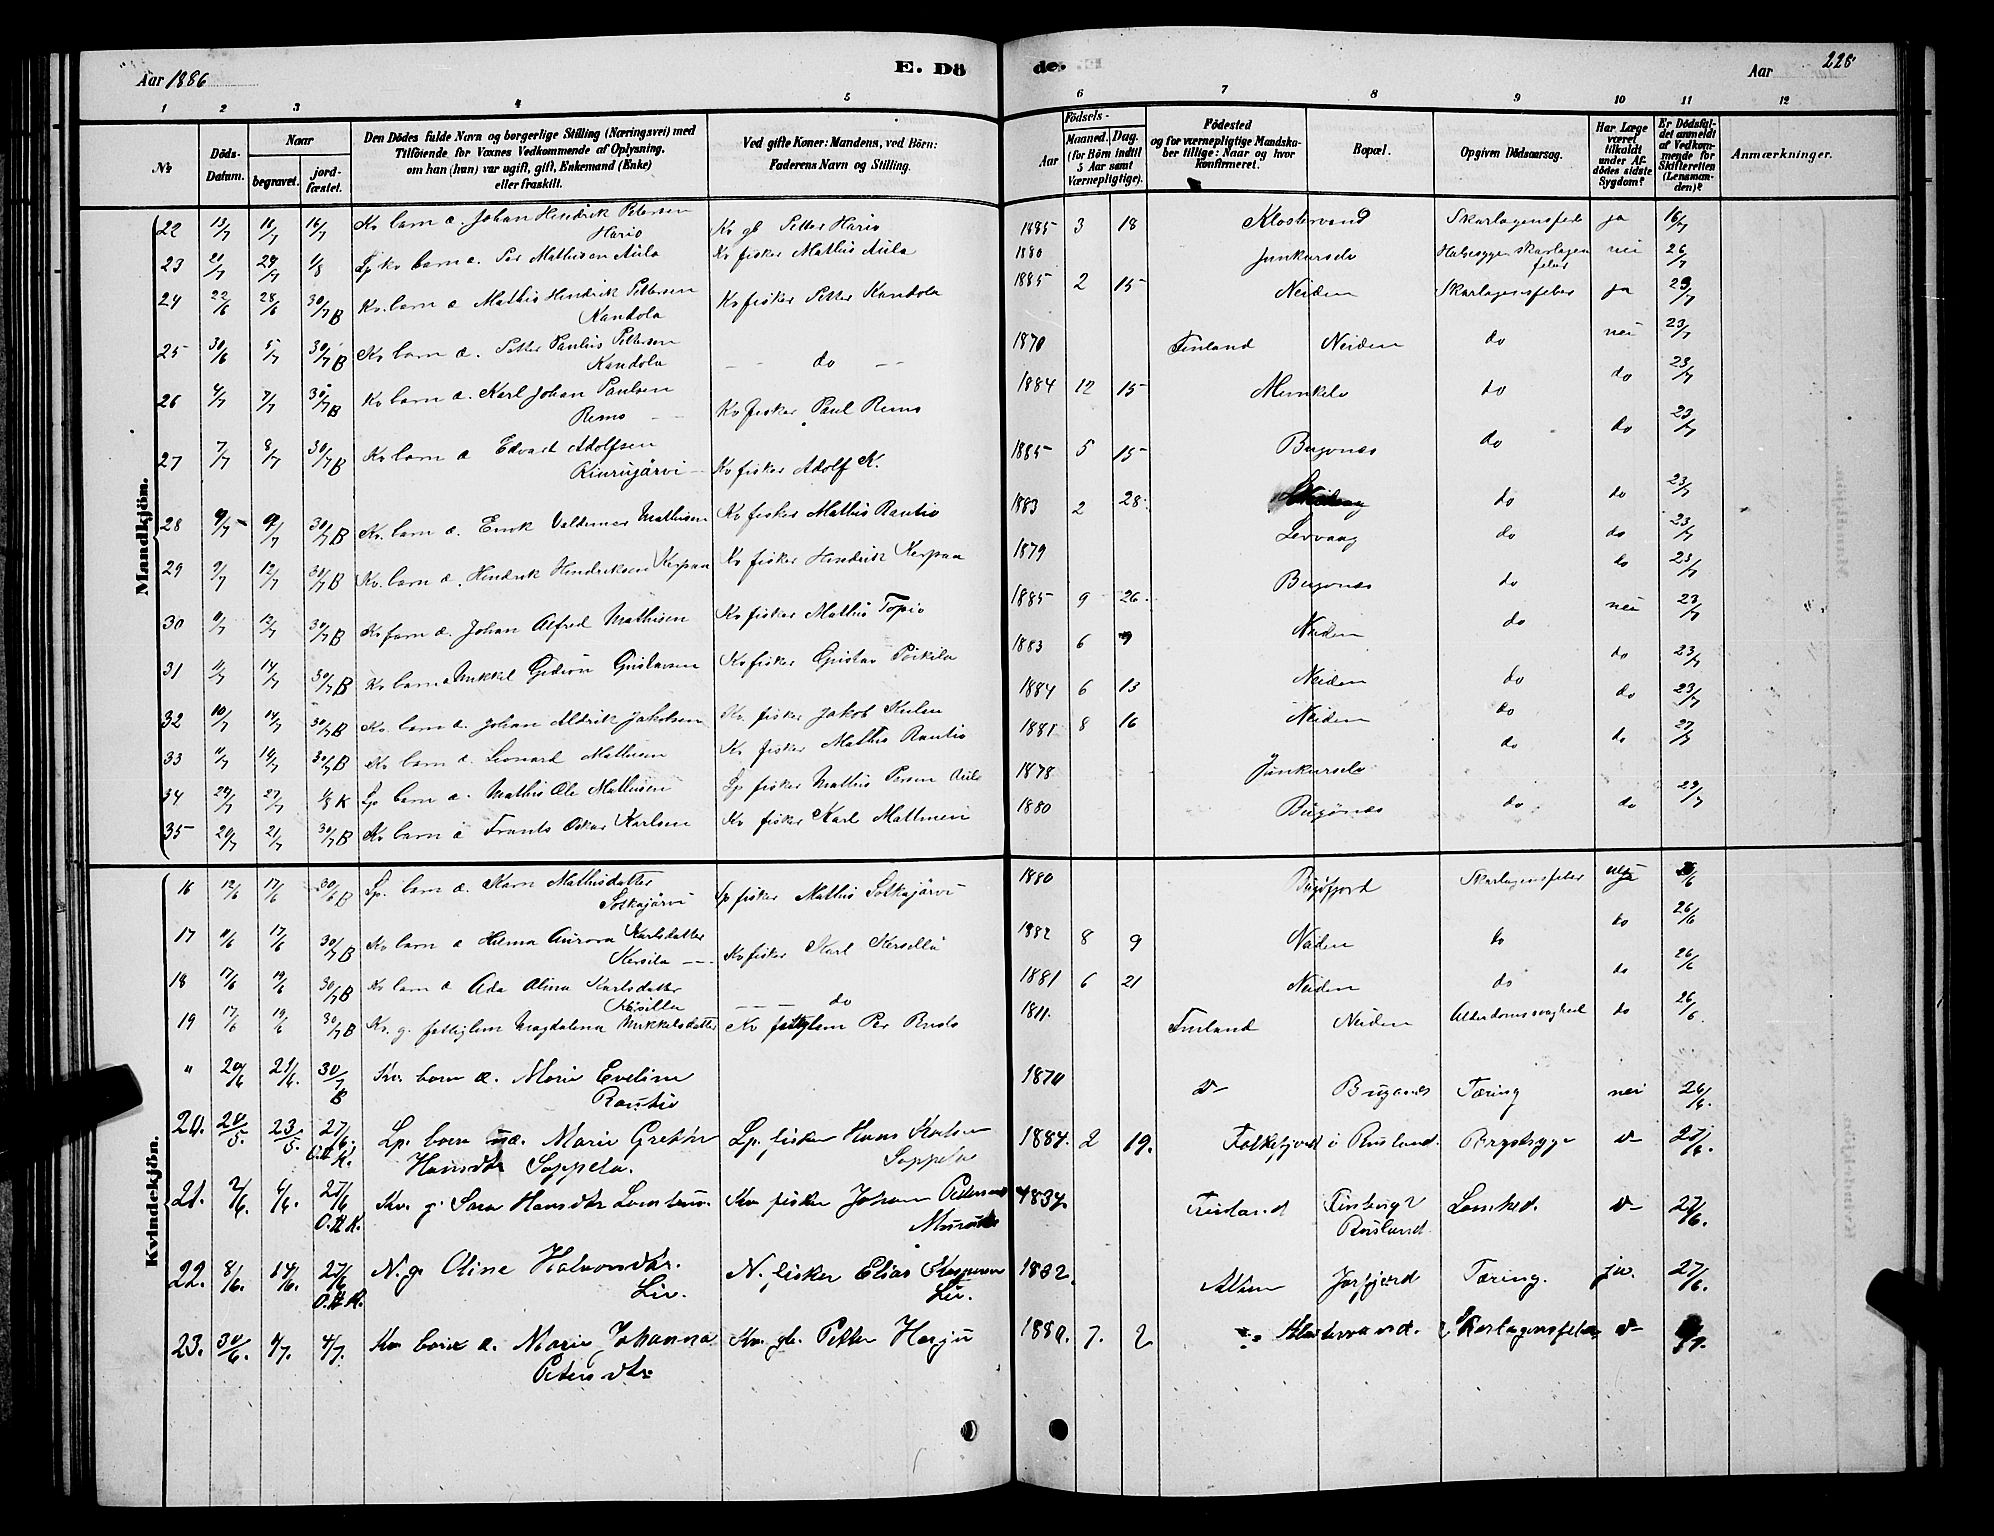 Aar 1886 E. Dö de. Aar 228
1 2 3 4 5 6 7 8 9 10 11 12
No Döds-Datum. Naar begravet. jord-fæstet. Den Dödes fulde Navn og borgerlige Stilling (Næringsvei) med Tilföiende for Voxnes Vedkommende af Oplysning, om han (hun) var ugift, gift, Enkemand (Enke) eller fraskilt. Ved gifte Koner: Mandens, ved Börn: Faderens Navn og Stilling. Födsels- Aar Maaned. Dag. (for Börn indtil 5 Aar samt Værnepligtige). Födested og for værnepligtige Mandskaber tillige: Naar og hvor konfirmeret. Bopæl. Opgiven Dödsaarsag. Har Læge været tilkaldt under Afdödes sidste Sygdom? Er Dödsfaldet anmeldt af Vedkommende for Skifteretten (Lensmanden)? Anmærkninger.
Mandkjön.
22 13/7 16/7 16/7 Kv barn a. Johan Hendrik Petersen Hario Kv gb Petter Hario 1885 3 18 Klostervand Skarlagensfeb ja 16/7
23 21/7 29/7 1/8 Lp kv barn a. Per Mathisen Aula Kv fisker Mathis Aula 1880 Junkurselv Halsesyge Skarlagenfeber nei 26/7
24 22/6 28/6 30/7 B Kv. barn a Mathis Hendrik Pettersen Kandola Kv fisker Petter Kandola 1885 2 15 Neiden Skarlagensfeber ja 23/7
25 30/6 5/7 30/7 B Kv barn a. Petter Paulus Pettersen Kandola — do — 1870 Finland Neiden do nei 23/7
26 4/7 7/7 30/7 B Kv barn a. Karl Johan Paulsen Remo Kv fisker Paul Remo 1884 12 15 Munkelv do do 23/7
27 7/7 8/7 30/7 B Kv barn a Edvard Adolfsen Kiurujärvi Kv fisker Adolf K. 1885 5 15 Bugönes do do 23/7
28 9/7 9/7 30/7 B Kv. barn a. Emik Valdemar Mathisen Kv fisker Mathis Rautio 1883 2 28 do do 23/7
29 9/7 12/7 30/7 B Kv. barn a. Hendrik Hendriksen Kerpaa Kv fisker Hendrik Kerpaa 1879 Lervaag do do 23/7
30 9/7 12/7 30/7 B Kv barn a. Johan Alfred Mathisen Kv fisker Mathis Topio 1885 9 26 Bugönes do do 23/7
31 11/7 14/7 30/7 B Kv barn a Mikkel Gideon Gustavsen Kv fisker Gustav Poikila 1883 6 9 Neiden do nei 23/7
32 10/7 14/7 30/7 B Kv barn a. Johan Aldrik Jakobsen Kv. fisker Jakob 1884 6 13 Neiden do do 23/7
33 11/7 14/7 30/7 B Kv barn a. Leonard Mathisen Kv fisker Mathis Rautio 1881 8 16 Neiden do do 23/7
34 24/7 27/7 1/8 K Lp barn a. Mathis Ole Mathisen Lp fisker Mathis Persen Aula 1878 Junkurselv do do 27/7
35 20/7 21/7 30/7 B Kv barn a Frants Oskar Karlsen Kv fisker Karl Mattinen 1880 Bugönes do do 23/7
Kvindekjön.
16 12/6 17/6 30/6 B Lp. barn a. Karn Mathisdatter Sotkajärvi Lp fisker Mathis Sotkajärvi 1880 Bugöfjord Skarlagensfeber 26/6
17 11/6 17/6 30/7 B Kv barn a Hilma Aurora Karlsdatter Kersila Kv fisker Karl Kersillä 1882 8 9 Neiden do do 26/6
18 17/6 19/6 30/7 B Kv barn a Ada Alina Karlsdatter Kersilla — — do 1881 6 21 Neiden do do 26/6
19 17/6 19/6 30/7 B Kv. g. fattiglem Magdalena Mikkelsdatter Kv fattiglem Per 1811 Finland Neiden Alderdomssvaghed do 26/6
" 20/6 21/6. 30/7 B Kv. barn a. Marie Eveline Rautio 1870 do Bugönæs Tæring nei 26/6.
20. 20/5. 23/5. 27/6. O.II K. Lp. barn uæ. Marie Grethe Hansdtr Soppela. Lp. fisker Hans Karlsen Soppela 1884. 2 19. Falkefjord i Rusland. Brystsyge do 27/6.
21. 2/6. 4/6. 27/6 O.II K. Kv. g. Sara Hansdtr Kv. fisker Johan Pedersen 1834. Finland Rusland do 27/6.
22. 8/6. 14/6. 27/6 O.II K. N. g. Oline Halvorsdtr. Liv. N. fisker Elias Kaspersen Liv. 1832. Alten Jarfjord Tæring. ja. 27/6.
23. 30/6. 4/7. 4/7. Kv. barn a. Marie Johanna Petersdtr. Kv. gb. Petter Harju 1880. 7. 2 Klostervand. Skarlagensfeber do